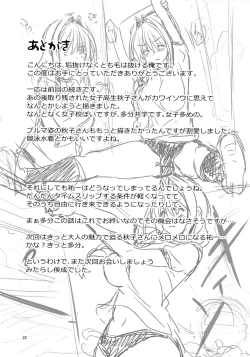 あとがき
こんにちは、垢抜けなくとも毛は抜ける俺です。
この度はお手にとっていただきありがとうございます。
一応は前回の続きです。
あの後取り残された女子高生秋子さんがカワイソウに思えて
なんとかしようと描きました。
なんとなく女子校ぽいですが、多分共学です。女子多めの。
ブルマ姿の秋子さんももっと描きたかったんですが割愛しました。
競泳水着とかもいいですよね。
それにしても祐一はどうなってしまってるんでしょうね。
だんだんタイムスリップする条件が軽くなってて
そのうち自由に行き来できるようになったりして。
まぁ多分この話はこれでお終いなのでその機会はなさそうですが
次回はきっと大人の魅力で迫る秋子さんにメロメロになる祐一…
かな？きっと多分。
というわけで、また次回お会いしましょう
みたらし侯成でした。